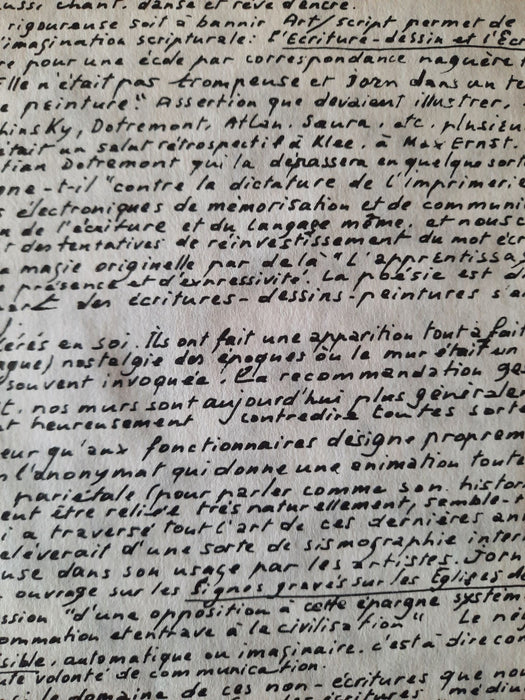 aussi chant, danse et rêve d'encre.
rigoureuse soit à bannir Art/script permet de
l'imagination scripturale: l'Ecriture-dessin et l'Ecr
re pour une école par correspondance naguère t
Elle n'était pas trompeuse et Jorn dans un te
e peinture". Assertion que devaient illustrer,
hinsky, Dotremont, Atlan, Saura, etc. plusieu
était un salut rétrospectif à Klee, à Max Ernst.
tian Dotremont qui la dépassera en quelque sort
gne-t-il "contre la dictature de l'imprimerie
s électroniques de mémorisation et de communi
n de l'écriture et du langage même, et nous c
r des tentatives de réinvestissement du mot écr
a magie originelle par delà "l'apprentissag
e présence et d'expressivité. La poésie est d
part des écritures-dessins-peintures s'a
érés en soi. Ils ont fait une apparition tout à fait
aque) nostalgie des époques où le mur était un
souvent invoquée. La recommandation ge
t. nos murs sont aujourd'hui plus générale
t heureusement contredire toutes sorte
eur qu'aux fonctionnaires désigne proprem
n l'anonymat qui donne une animation toute
pariétale (pour parler comme son histor
eut être reliée très naturellement, semble-t
i a traversé tout l'art de ces dernières an
elèverait d'une sorte de sismographie inter
use dans son usage par les artistes. Jorn
ouvrage sur les Signes gravés sur les Églises de
ssion "d'une opposition à cette épargne systém
ommation et entrave à la civilisation" Le no
sible, automatique ou imaginaire. c'est à dire con
ute volonté de communication.
le domaine de ces non-écritures que nou
écritures